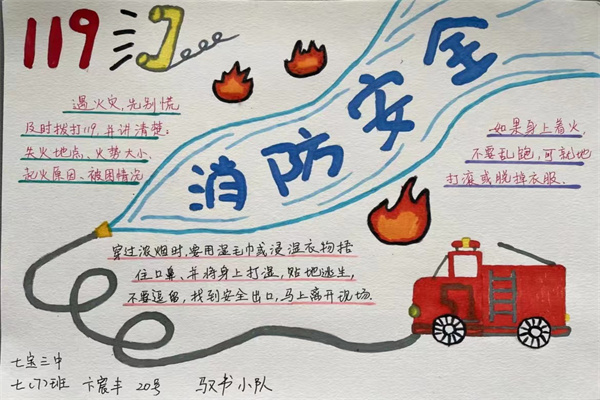 119
消防安全
遇火灾,先别慌
及时拨打119,并讲清楚:
失火地点、火势大小、
起火原因、被困情况
如果身上着火,
不要乱跑,可就地
打滚或脱掉衣服、
穿过浓烟时,要用湿毛巾或浸湿衣物捂
住口鼻、并将身上打湿,贴地逃生,
不要逗留,找到安全出口,马上离开现场.
七宝三中
七(7)班 卞宸丰 20号 驭书小队